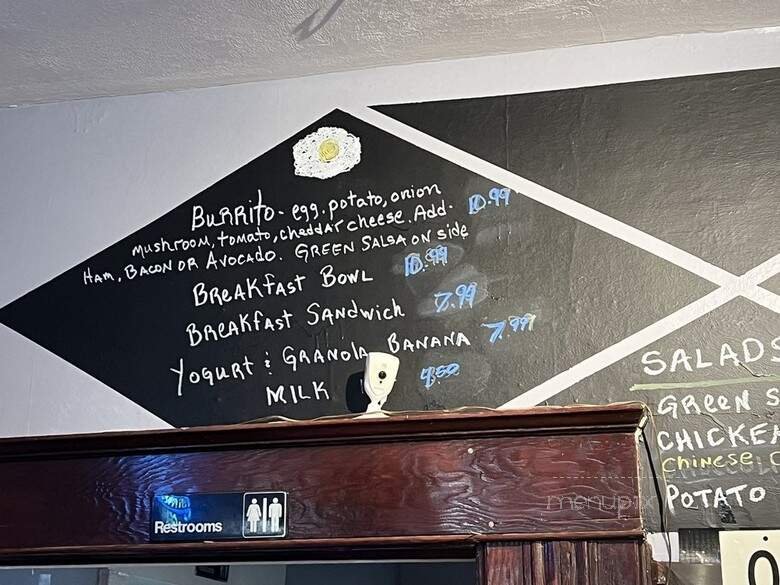 BURRITO - egg, potato, onion 10.99
mushroom, tomato, cheddar cheese. Add.
HAM, BACON OR AVOCADO. GREEN SALSA ON side
BREAKFAST BOWL 10.99
BREAKFAST SANDWICH 7.99
YOGURT & GRANOLA BANANA 7.99
MILK 4.50
SALADS
GREEN S
CHICKEN
CHINESE C
POTATO
Restrooms
menupix